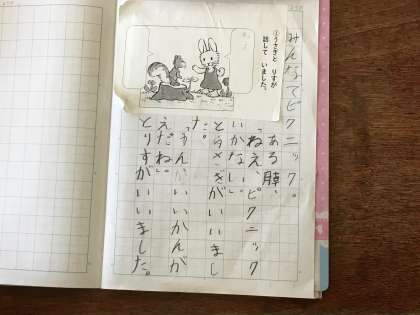 みんなでピクニック。
うさぎと りすが
話して いました。
ある朝、
「ねえ、ピクニック
いかない。」
とうさぎがいいまし
た。
「うん、いいかんが
えだね。」
とりすがいいました。